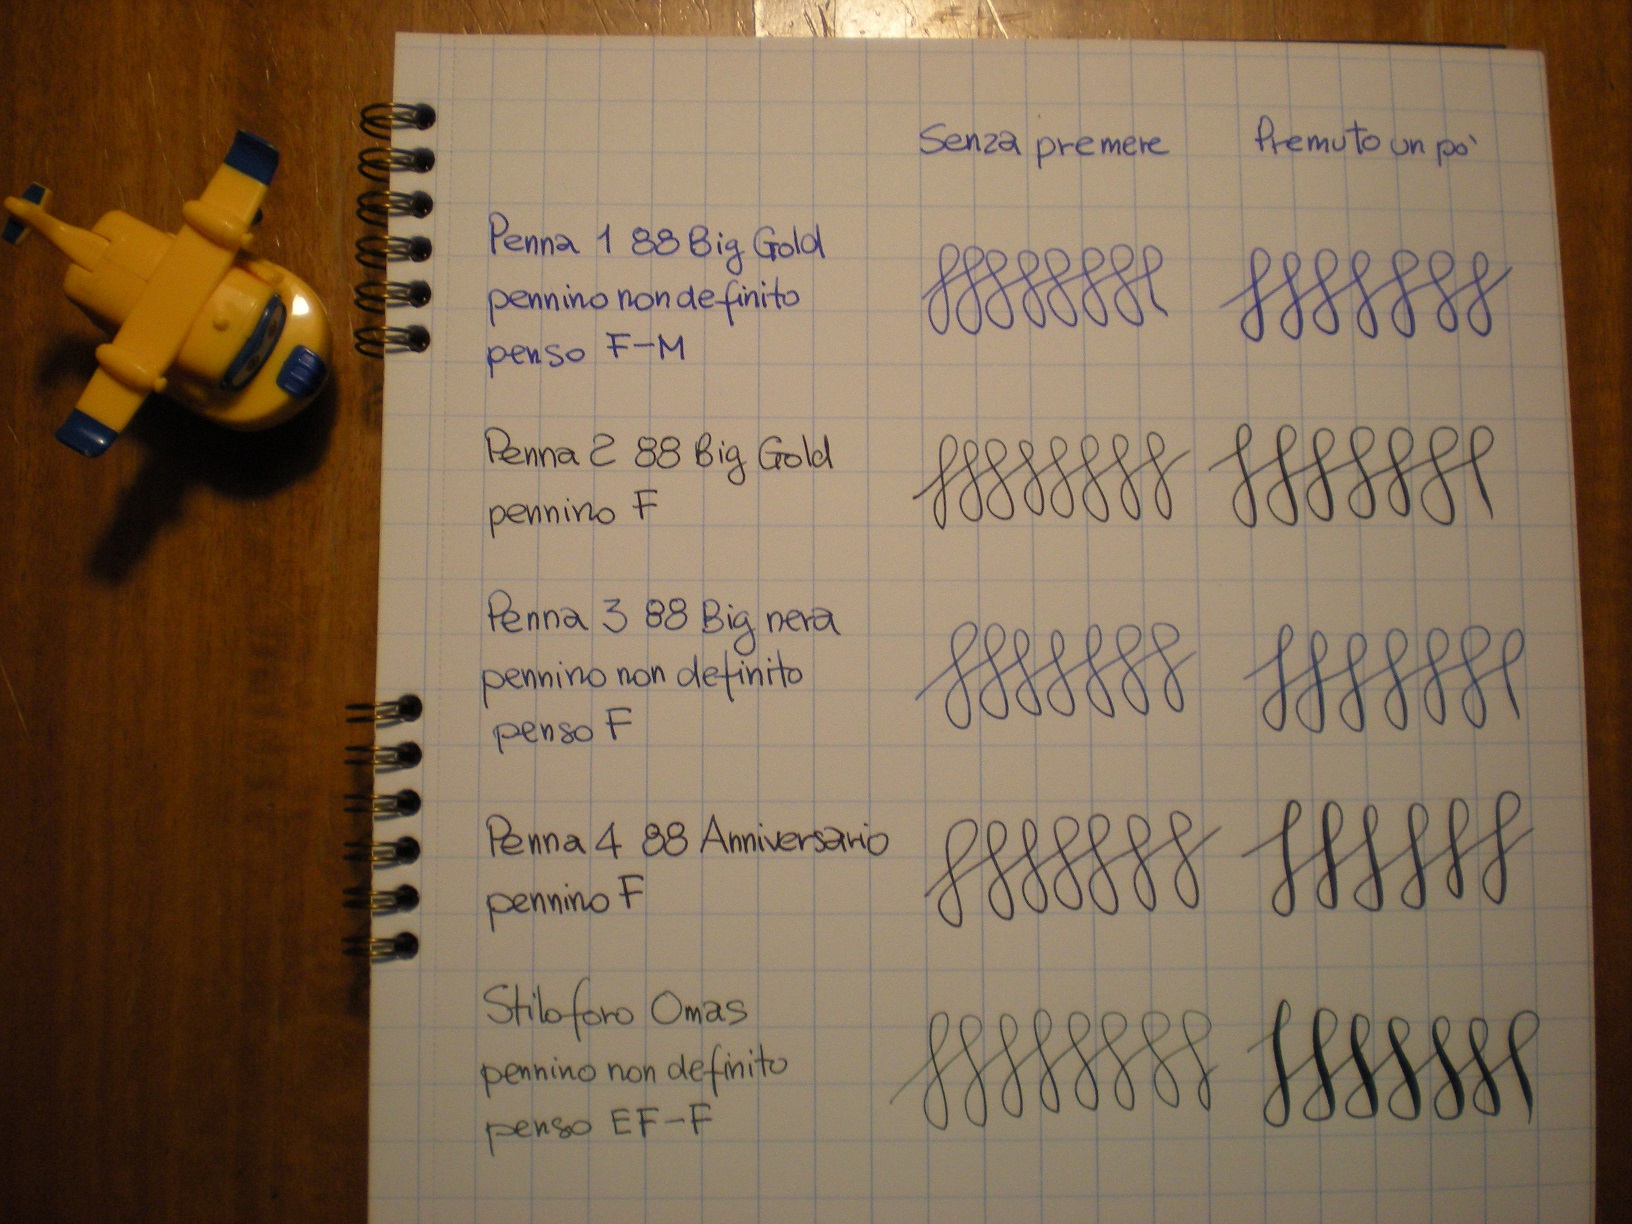 Senza premere Premuto un pò
Penna 1 88 Big Gold
pennino non definito
penso F-M
Penna 2 88 Big Gold
pennino F
Penna 3 88 Big nera
pennino non definito
penso F
Penna 4 88 Anniversario
pennino F
Stiloforo Omas
pennino non definito
penso EF-F